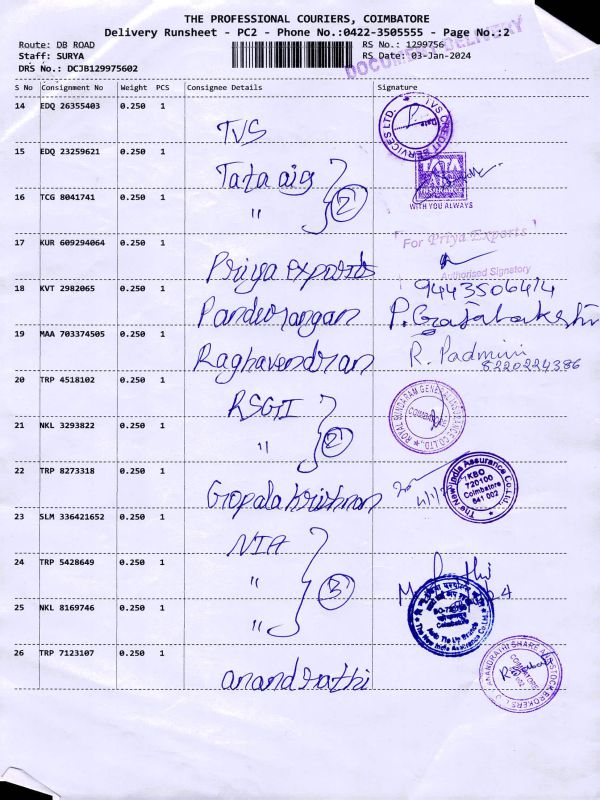 THE PROFESSIONAL COURIERS, COIMBATORE
Delivery Runsheet - PC2 - Phone No.:0422-3505555 - Page No.:2
Route: DB ROAD
RS No.: 1299756
Staff: SURYA
RS Date: 03-Jan-2024
DRS No.: DCJB129975602
DOCUMENT DELIVERY
S No Consignment No Weight PCS Consignee Details Signature
14 EDQ 26355403 0.250 1
TVS
TVS CREDIT SERVICES LTD.
15 EDQ 23259621 0.250 1
Tata aig
TATA
AIG
INSURANCE
WITH YOU ALWAYS
16 TCG 8041741 0.250 1
" 2
17 KUR 609294064 0.250 1
For Priya Exports
Priya exports
Authorised Signatory
18 KVT 2982065 0.250 1
9443506414
Pandurangan
19 MAA 703374505 0.250 1
Raghavendran
R. Padmini
8220224386
20 TRP 4518102 0.250 1
RSGI
ROYAL SUNDARAM GENERAL INSURANCE CO. LTD.
COIMBATORE
21 NKL 3293822 0.250 1
" 2
22 TRP 8273318 0.250 1
Gopala krishnan
The New India Assurance Co. Ltd.
KBO
720100
Coimbatore
641 002
23 SLM 336421652 0.250 1
NIA
24 TRP 5428649 0.250 1
" 3
25 NKL 8169746 0.250 1
"
Coimbatore
The New India Assurance Co. Ltd.
26 TRP 7123107 0.250 1
anandrathi
ANANDRATHI SHARE AND STOCK BROKERS LTD.
COIMBATORE